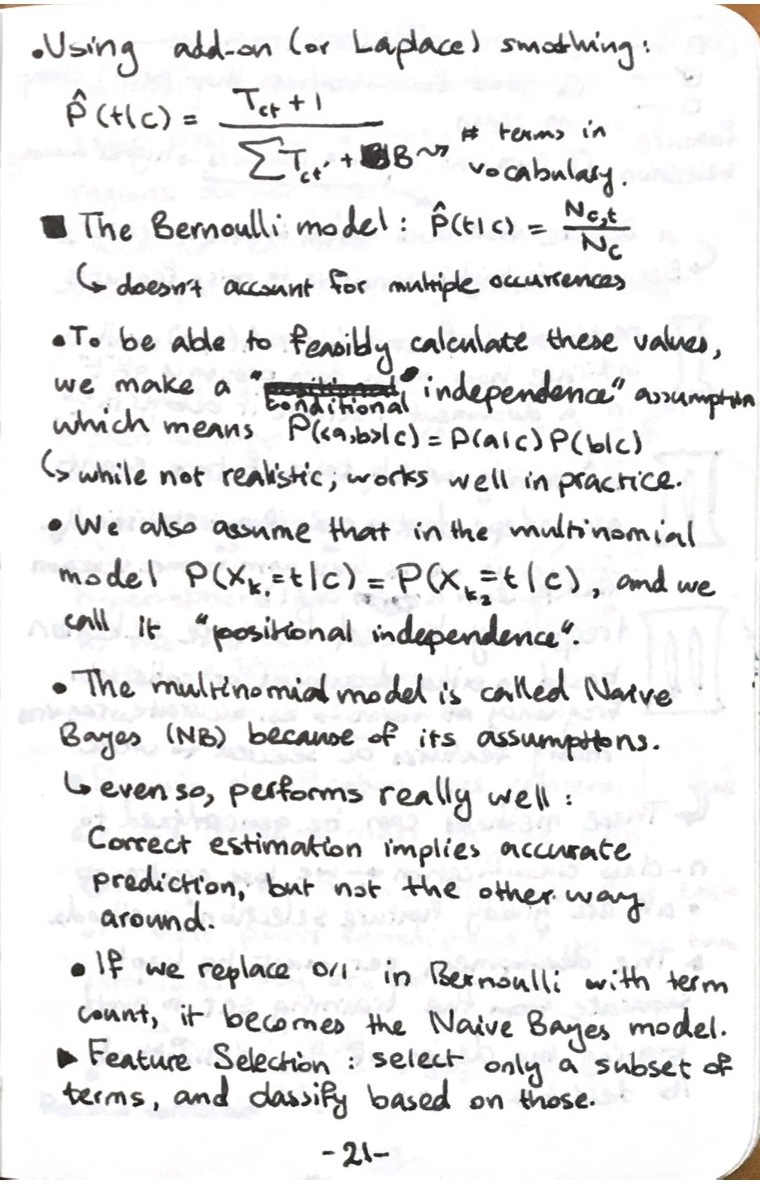 •Using add-on (or Laplace) smothing:
P̂(t|c) = (T_ct + 1) / (∑T_ct' + B) ⤳ # terms in
vocabulary.
■ The Bernoulli model: P̂(t|c) = N_c,t / N_c
↳ doesn't account for multiple occurrences
•To be able to feasibly calculate these values,
we make a "conditional independence" assumption
which means P(<a,b>|c) = P(a|c) P(b|c)
↳ while not realistic; works well in practice.
• We also assume that in the multinomial
model P(X_k₁=t|c) = P(X_k₂=t|c), and we
call it "positional independence".
• The multinomial model is called Naive
Bayes (NB) because of its assumptions.
↳ even so, performs really well:
Correct estimation implies accurate
prediction, but not the other way
around.
• If we replace 0/1 in Bernoulli with term
count, it becomes the Naive Bayes model.
▶ Feature Selection: select only a subset of
terms, and classify based on those.
-21-